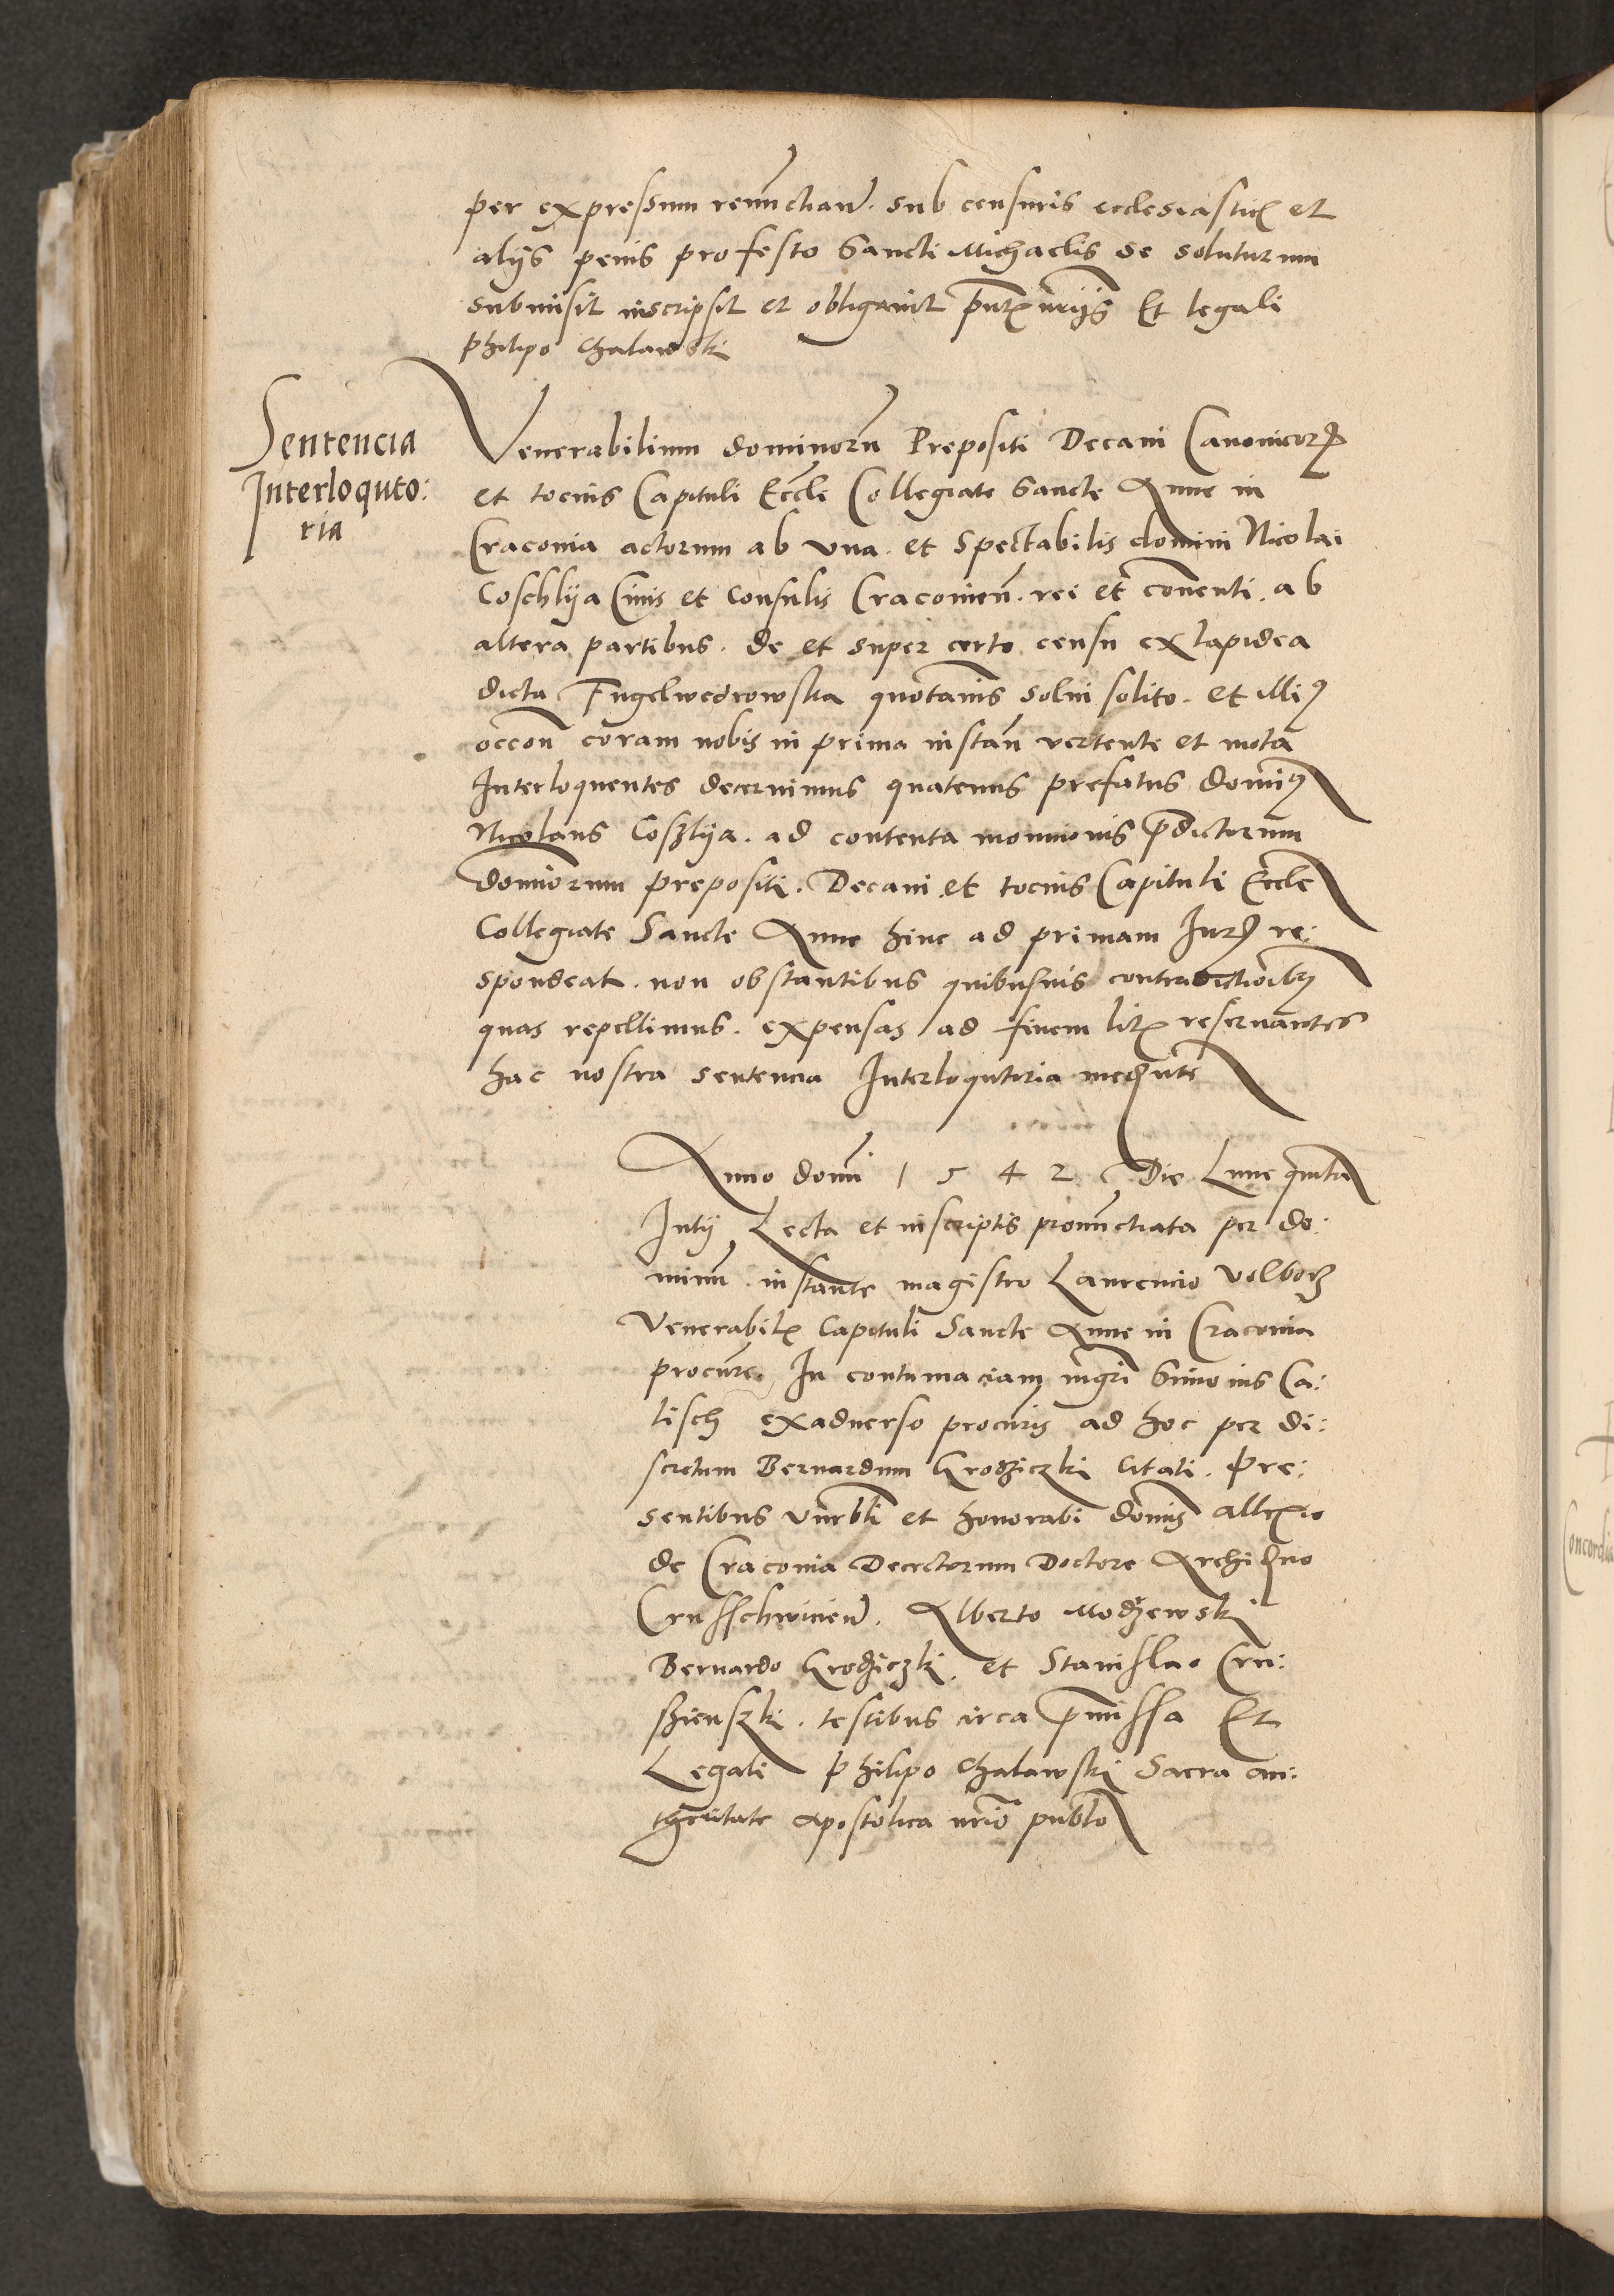 per expressum renunctian̄. sub censuris ecclesiasticis et
alÿs penis pro festo Sancti Michaelis se soluturum
submisit inscripsit et obligauit pñtibus Et legali
Philipo Chalawski
Sentencia
Interloquto:
ria
Venerabilium dominorū Prepositi Decani Canonicorꝫ
et tocius Capituli Eccle Collegiate Sancte Anne in
Cracouia actorum ab vna. et Spectabilis domini Nicolai
Coschlÿa Ciuis et Consulis Cracouien̄. rei et conuenti. ab
altera partibus. de et super certo censu ex lapidea
dicta Fugelwedrowska quotannis solui solito. et illiꝰ
occon̄ coram nobis in prima instan̄ vertente et mota
Interloquentes decernimus quatenus prefatus domiꝰ
Nicolaus Coszlÿa. ad contenta monicionis p̄dictorum
domiorum prepositi. Decani et tocius Capituli Eccle
Collegiate Sancte Anne hinc ad primam Iurꝫ re:
spondeat. non obstantibus quibusuis contradictioībꝫ
quas repellimus. expensas ad finem litis reseruantes
hac nostra sentencia Interloqutoria med̄nte
Anno domī 1 5 4 2 Die Lune quinta
Iulÿ Lecta et in scriptis pronūctiata per do:
minū. instante magistro Laurencio Volborz
Venerabilis Capituli Sancte Anne in Cracouia
procure. In contumaciam mgrī Simonis Ca:
lisch exaduerso procuris ad hoc per di:
scretum Bernardum Grodziczki Citati. Pre:
sentibus vnrbli et honorabi domīs
de Cracouia Decretorum Doctore Archid̄no
Crusschwicien̄. Alberto Modzewski
Bernardo Grodziczki. et Stanislao Cru:
szienszki. testibus circa p̄missa Et
Legali Philipo Chalawski Sacra au:
thoritate apostolica nrio publo